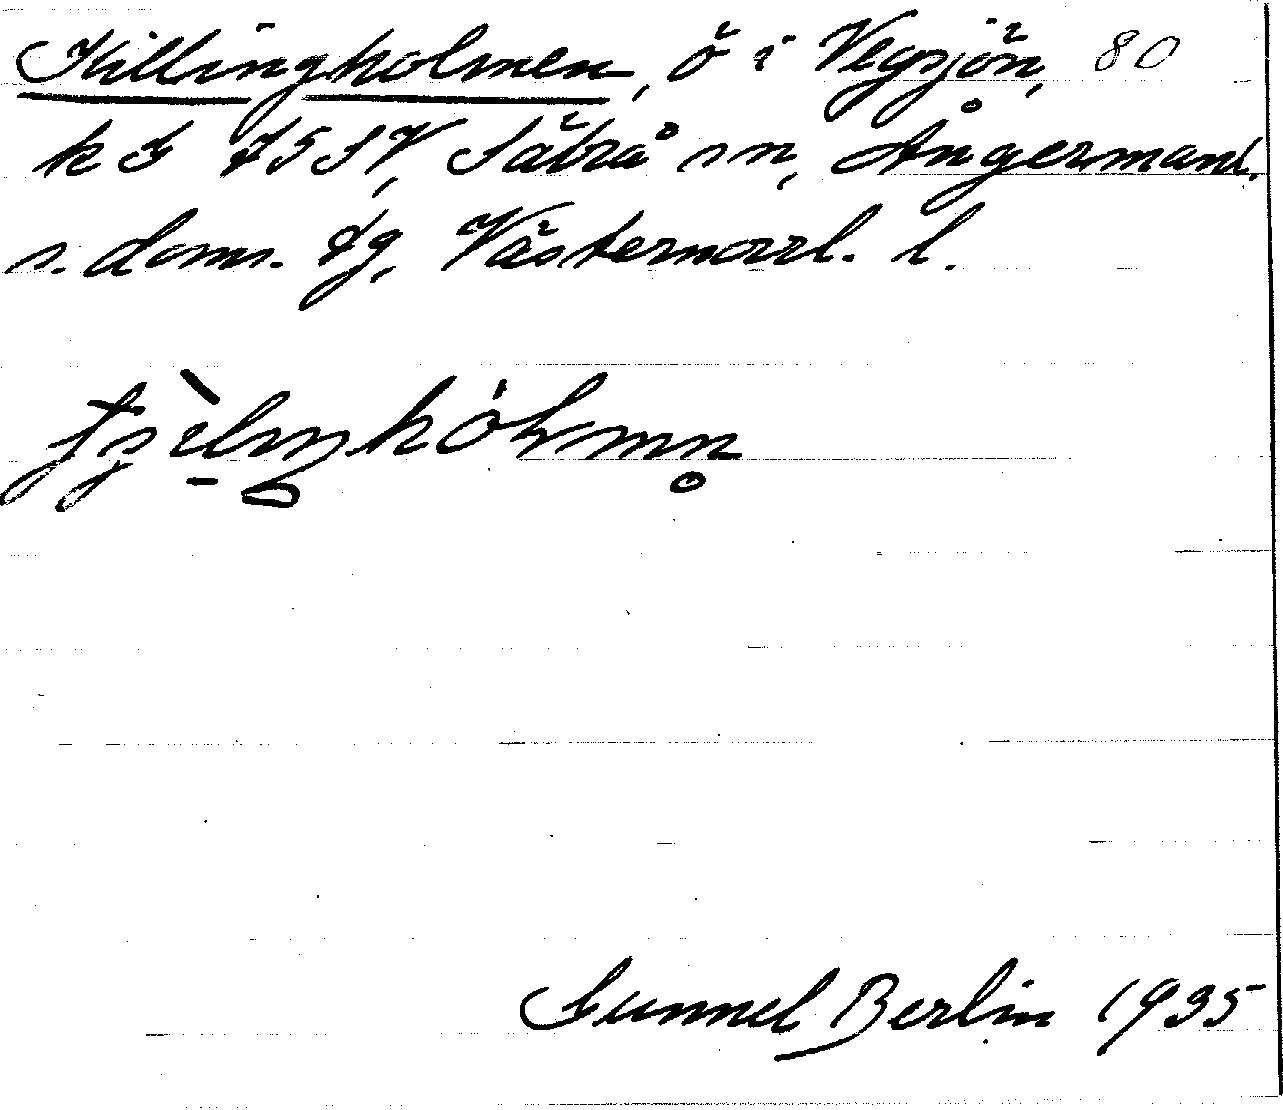 Killingholmen, ö i Vegsjön, 80
k G 75 SV, Säbrå sn, Ångermanl.
s. doms. tg, Västernorrl. l.
Gunnel Berlin 1935